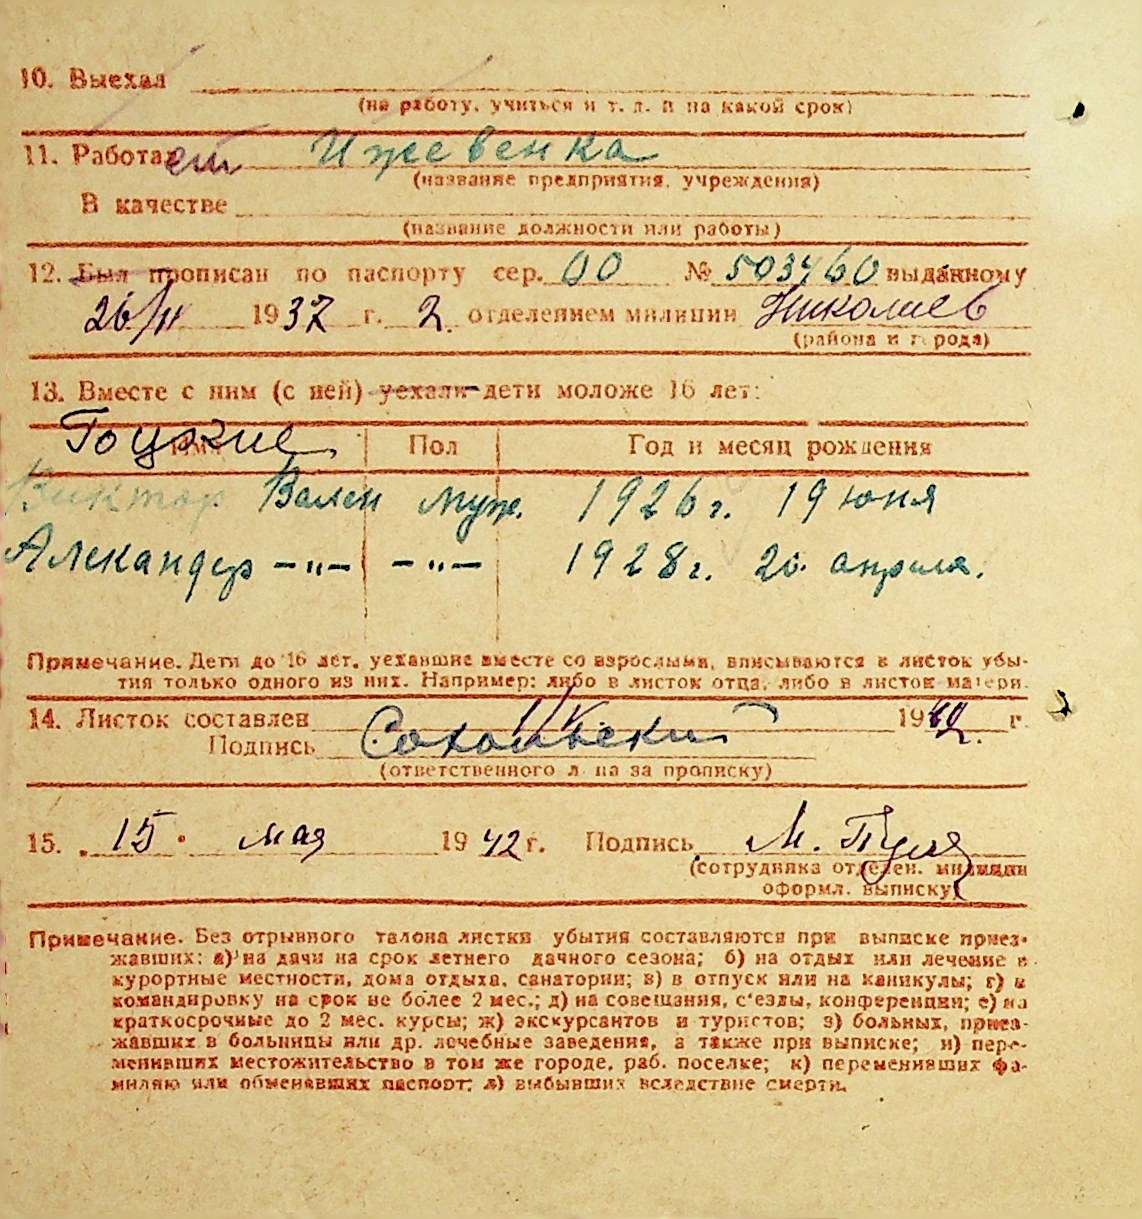 10. Выехал
(на работу, учиться и т. д. и на какой срок)
11. Работает Ижевенка
(название предприятия, учреждения)
В качестве
(название должности или работы)
12. Был прописан по паспорту сер. 00 № 503460 выданному
26/II 1937 г. 2 отделением милиции Николаев
(района и города)
13. Вместе с ним (с ней) уехали дети моложе 16 лет:
Гоцкие Пол Год и месяц рождения
Виктор Вален муж. 1926 г. 19 июня
Александр –"– –"– 1928 г. 20 апреля.
Примечание. Дети до 16 лет, уехавшие вместе со взрослыми, вписываются в листок убы-
тия только одного из них. Например: либо в листок отца, либо в листок матери.
14. Листок составлен 1942 г.
Подпись
(ответственного лица за прописку)
15. 15 мая 1942 г. Подпись М.
(сотрудника отделен. милиции
оформл. выписку)
Примечание. Без отрывного талона листки убытия составляются при выписке приез-
жавших: а) на дачи на срок летнего дачного сезона; б) на отдых или лечение в
курортные местности, дома отдыха, санатории; в) в отпуск или на каникулы; г) в
командировку на срок не более 2 мес.; д) на совещания, с'езды, конференции; е) на
краткосрочные до 2 мес. курсы; ж) экскурсантов и туристов; з) больных, приез-
жавших в больницы или др. лечебные заведения, а также при выписке; и) пере-
менивших местожительство в том же городе, раб. поселке; к) переменивших фа-
милию или обменявших паспорт; л) выбывших вследствие смерти.